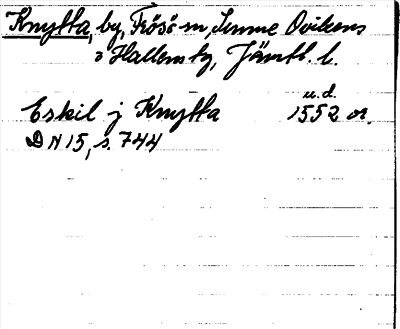 Knytta, by, Frösö sn, Sunne Ovikens
o Hallens tg, Jämtl. l.
u.d.
Eskil j Knytta 1552 or.
DN 15, s. 744